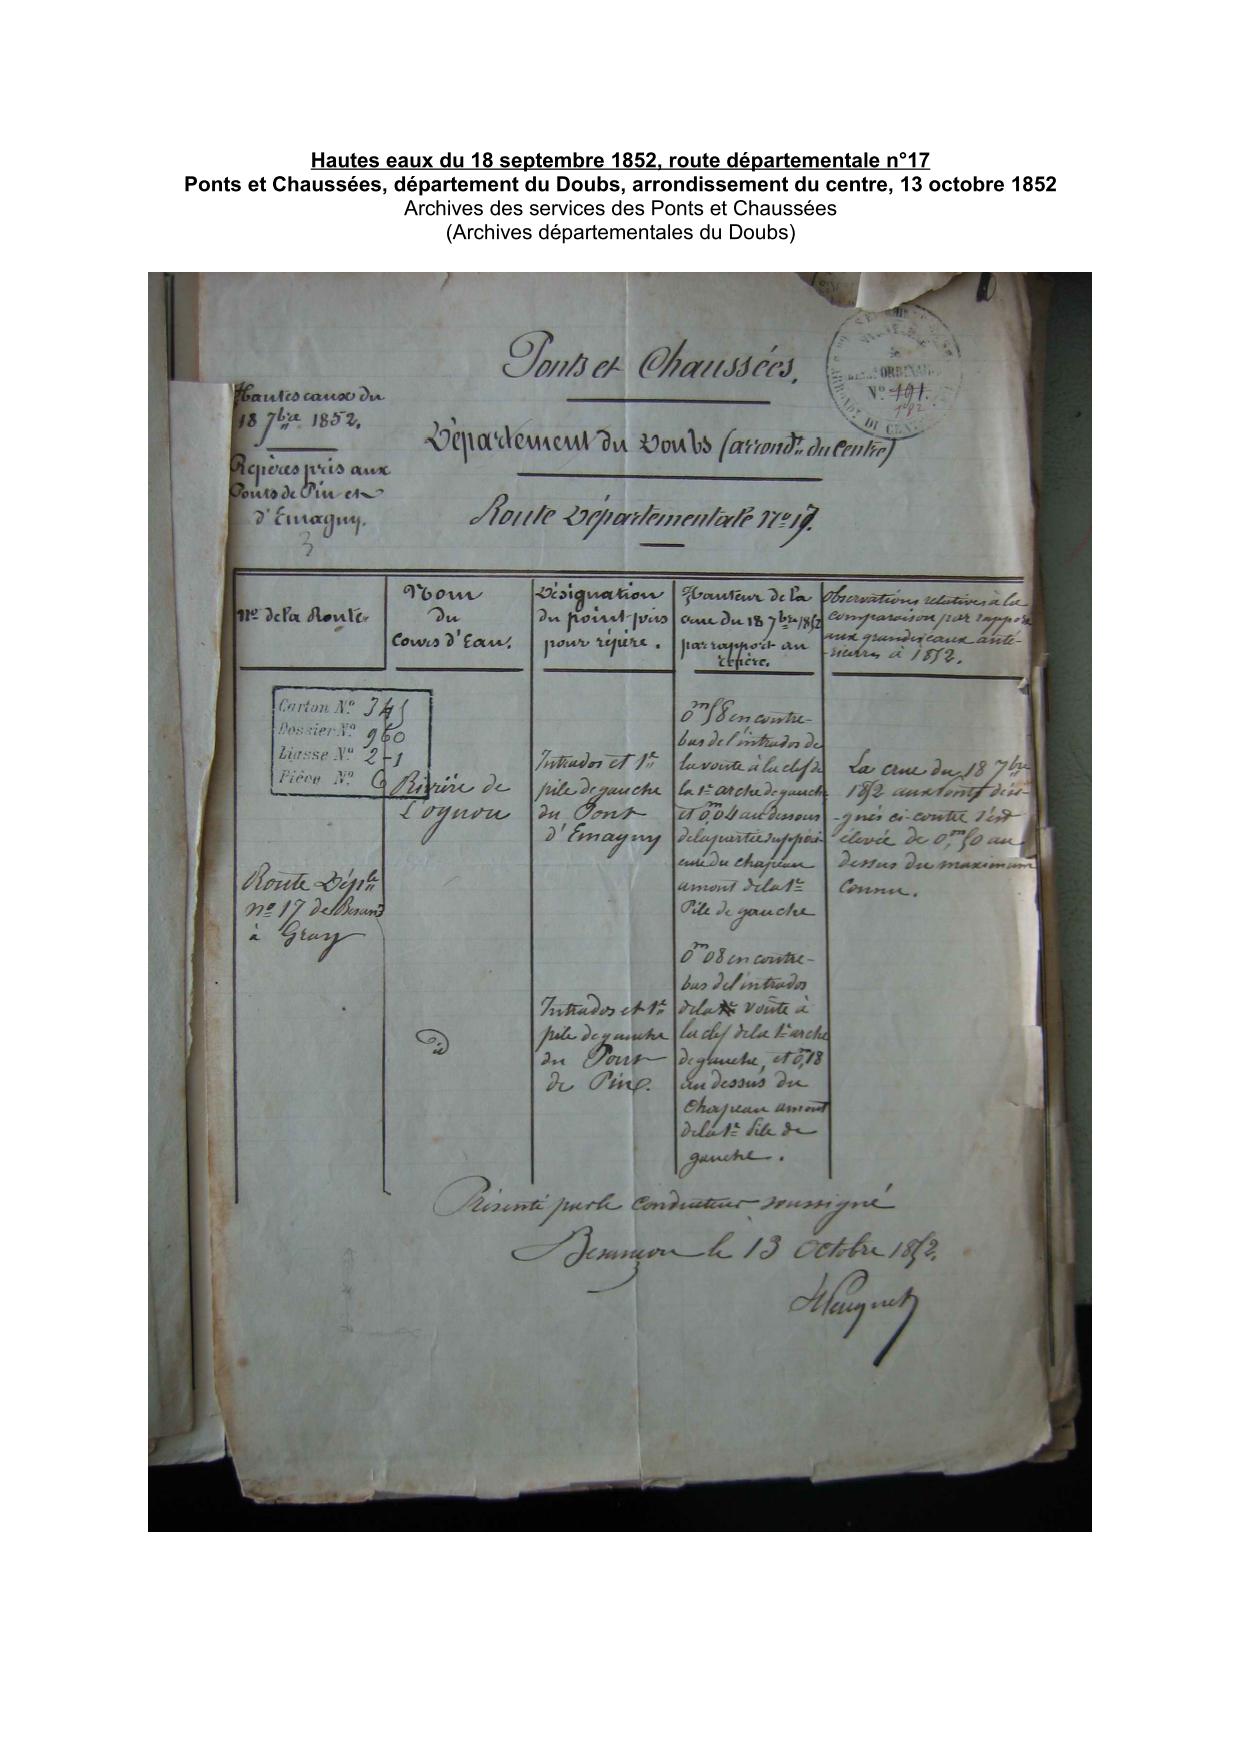 Hautes eaux du 18 septembre 1852, route départementale n°17
Ponts et Chaussées, département du Doubs, arrondissement du centre, 13 octobre 1852
Archives des services des Ponts et Chaussées
(Archives départementales du Doubs)
Ponts et Chaussées.
N° 191.
192
Hautes eaux du
18 7bre 1852.
Repères pris aux
Ponts de Pin et
d'Emagny.
3
Département du Doubs (arrondt. du Centre)
Route Départementale No. 17.
No. de la Route.
Nom
du
Cours d'Eau.
Désignation
du point pris
pour répère.
Hauteur de la
crue du 18 7bre 1852
par rapport au
repère.
Observations relatives à la
comparaison par rapport
aux grandes eaux anté-
-rieures à 1852.
Carton N° 345
Dossier N° 960
Liasse N° 2-1
Pièce N° 6
Route Déple
no. 17 de Besanç
à Gray
Rivière de
L'ognon
Intrados et 1re
pile de gauche
du Pont
d'Emagny
0m58 en contre-
bas de l'intrados de
la voute à la clef de
la 1re arche de gauche
et 0m,04 au dessous
de la partie supéri-
eure du chapeau
amont de la 1re
Pile de gauche
La crue du 18 7bre
1852 aux points dési-
-gnés ci-contre s'est
élevée de 0,m50 au
dessus du maximum
connu.
id
Intrados et 1re
pile de gauche
du Pont
de Pin.
0m08 en contre-
bas de l'intrados
de la voûte à
la clef de la 1re arche
de gauche, et 0m,18
au dessus du
Chapeau amont
de la 1re Pile de
gauche.
Présenté par le Conducteur soussigné
Besançon le 13 octobre 1852.